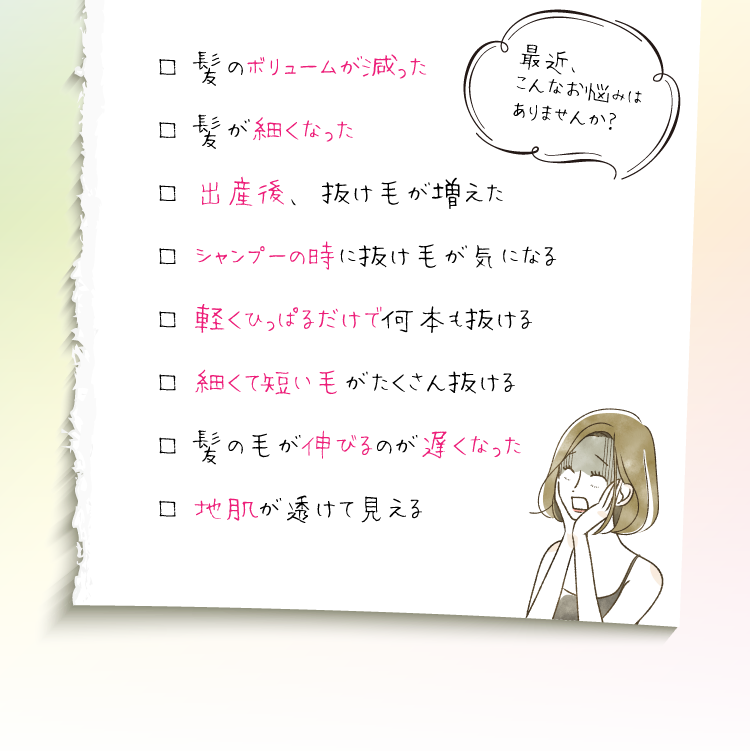 最近、
こんなお悩みは
ありませんか?
□ 髪のボリュームが減った
□ 髪が細くなった
□ 出産後、抜け毛が増えた
□ シャンプーの時に抜け毛が気になる
□ 軽くひっぱるだけで何本も抜ける
□ 細くて短い毛がたくさん抜ける
□ 髪の毛が伸びるのが遅くなった
□ 地肌が透けて見える